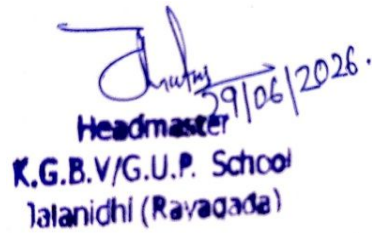 29/06/2026.
Headmaster
K.G.B.V/G.U.P. School
Jalanidhi (Ravagada)